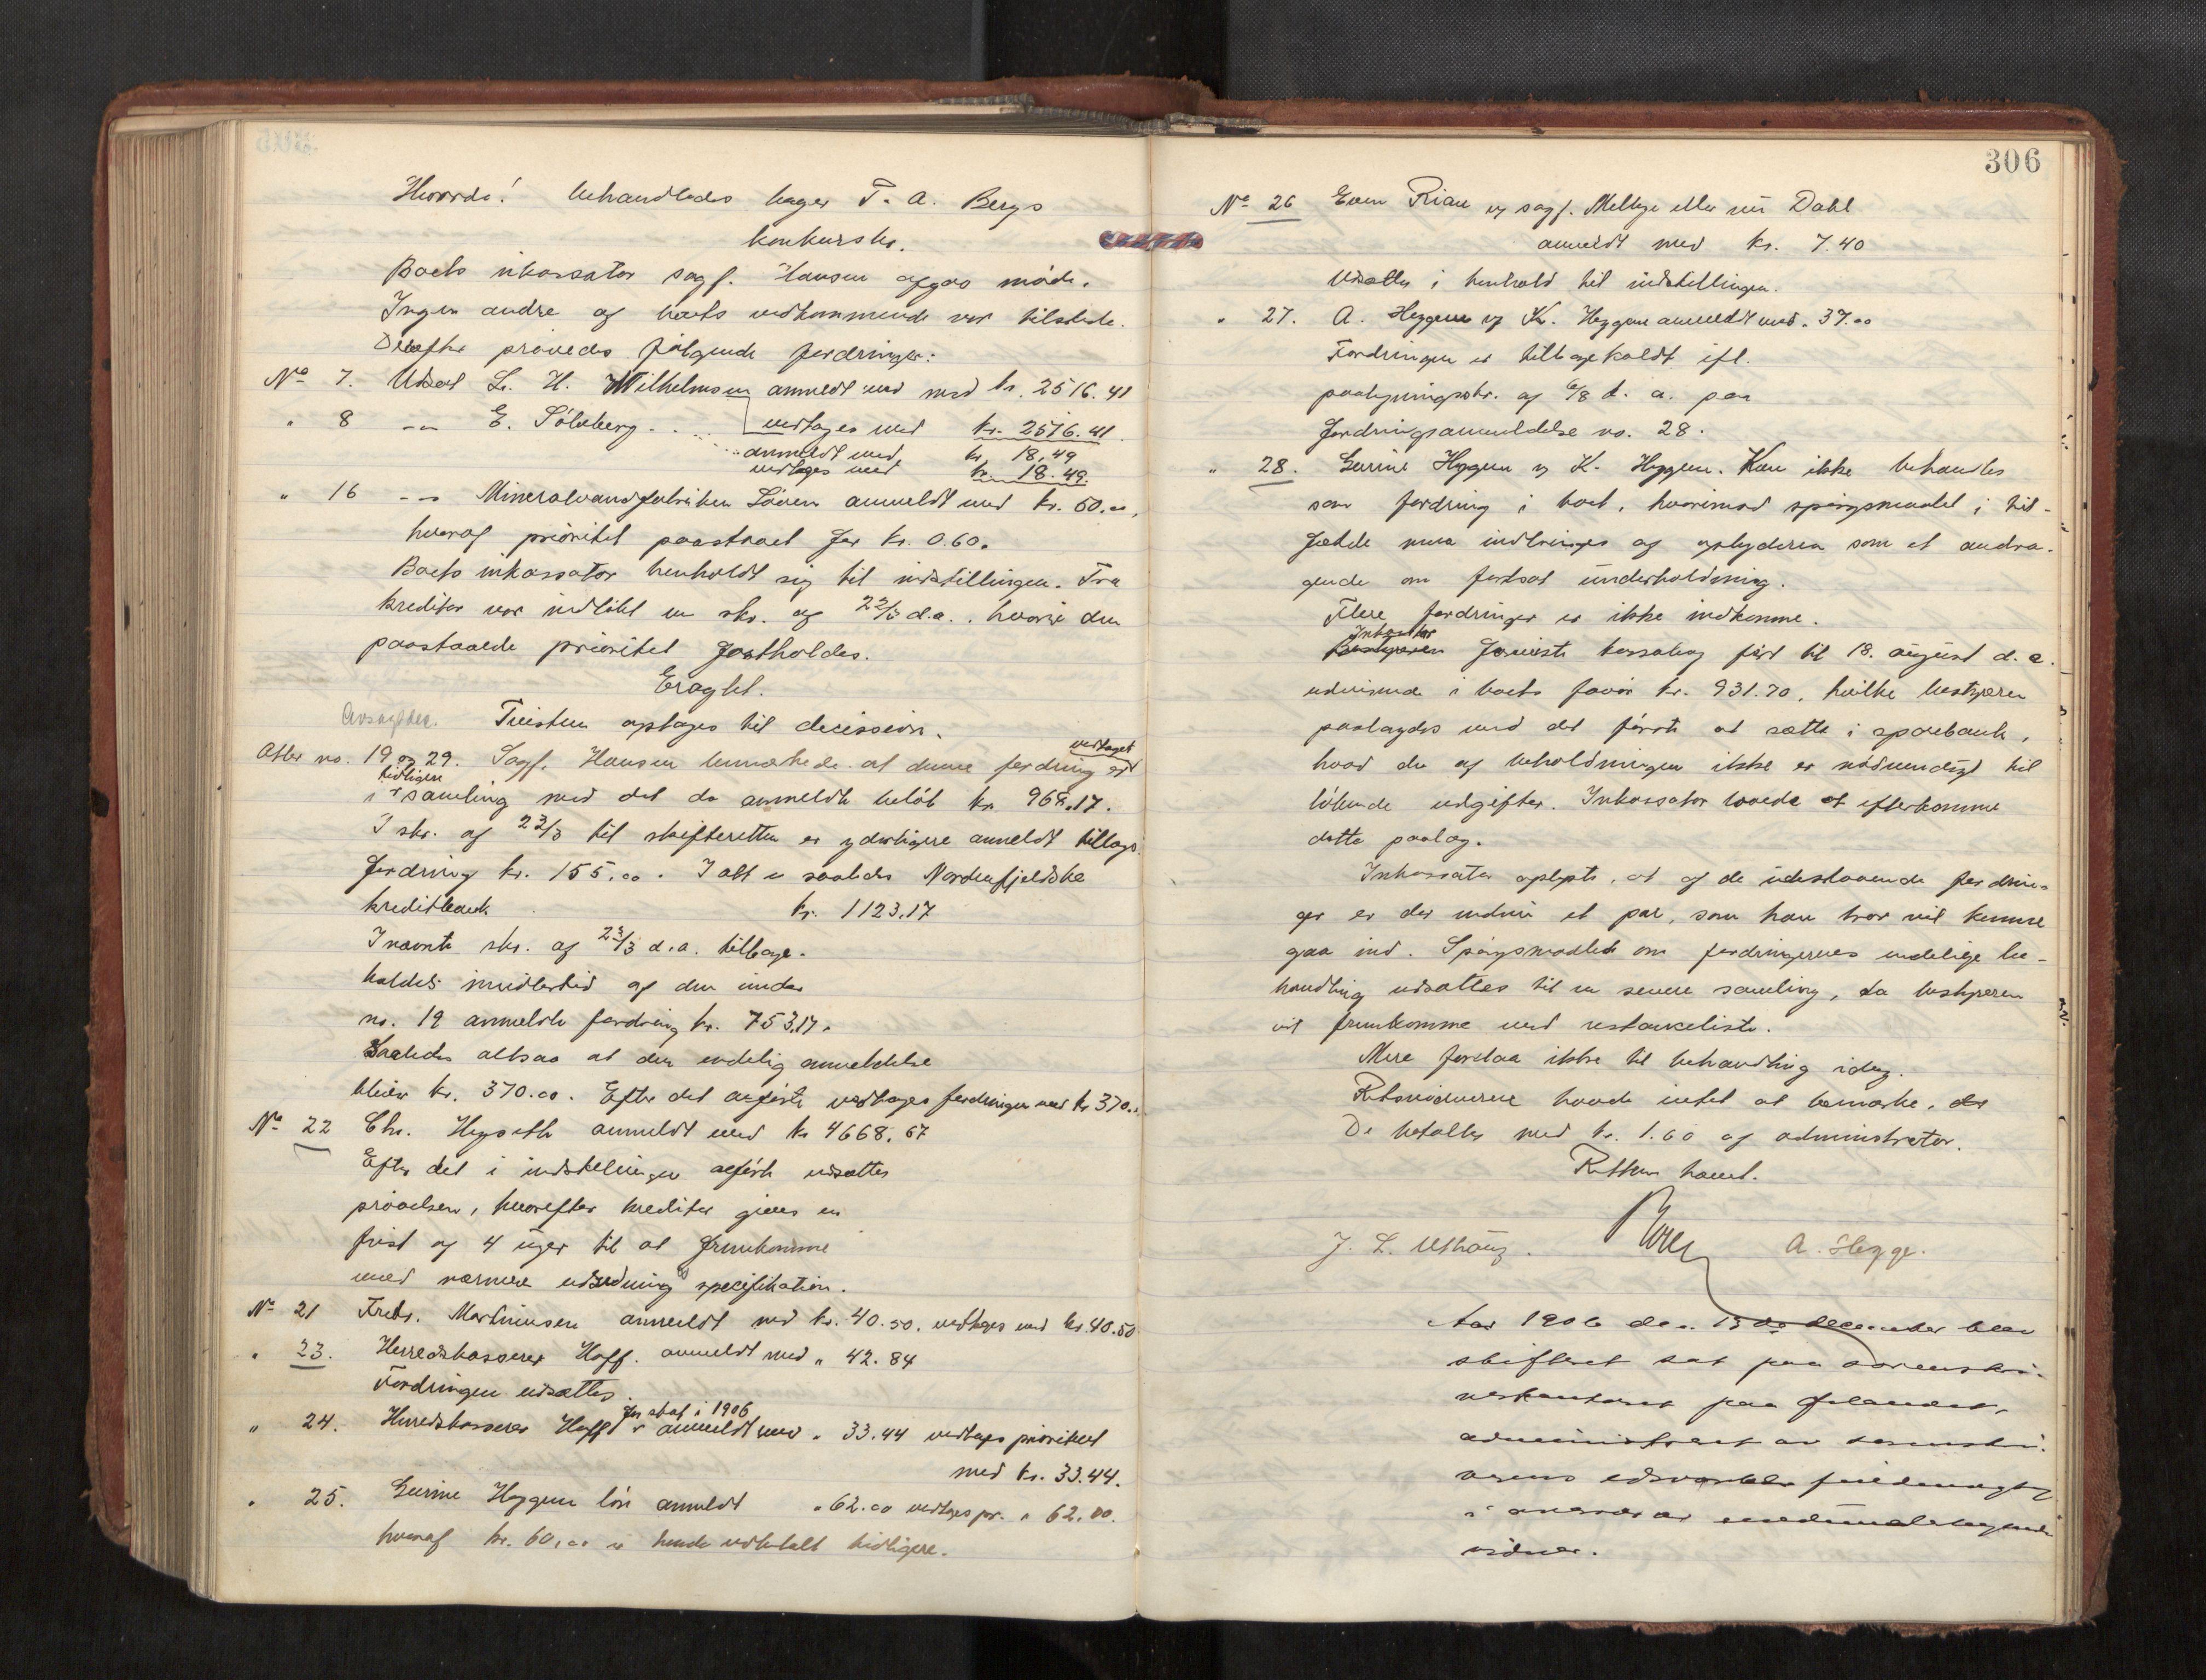 Hvorda! behandledes bager T. A. Bergs
konkursbo.
Boets inkassator sagf. Hansen afgav møde.
Ingen andre af boets vedkommende var tilstede.
Derefter prøvedes følgende fordringer:
No 7. Udsat L. H. Wilhelmsen anmeldt med kr. 2516.41
vedtages med kr. 2516.41.
" 8 —"— E. Sölvberg . . anmeldt med kr. 18,49
vedtages med kr. 18.49.
" 16 —"— Mineralvandfabriken anmeldt med kr. 50.00,
hvoraf prioritet paastaaet for kr. 0.60.
Boets inkassator henholdt sig til indstillingen. Fra
kreditor var indløbet en skr. af 23/3 d.a., hvori den
paastaaede prioritet fastholdes.
Eragtet.
Avsagdes. Tvisten optages til decission.
Atter no. 19 og 29. Sagf. Hansen bemærkede at denne fordring er vedtaget
i tidligere samling med det da anmeldte beløb kr. 968.17.
I skr. af 23/3 til skifteretten er yderligere anmeldt tillægs
fordring kr. 155.00. I alt er saaledes Nordenfjeldske
kreditbank kr. 1123.17
I nævnte skr. af 23/3 d.a. tilbage-
kaldes imidlertid af den under
no. 19 anmeldte fordring kr. 753.17.
Saaledes altsaa at den endelig anmeldelse
bliver kr. 370.00. Efter det anførte vedtages fordringen med kr 370.
No 22 Chr. Hegseth anmeldt med kr 4668.67
Efter det i indstillingen anførte udsættes
prøvelsen, hvorefter kreditor gives en
frist af 4 uger til at fremkomme
med nærmere udredning specifikation.
No 21 Fredr. Martinusen anmeldt med kr. 40.50. vedtages med kr 40.50
" 23. Herredskasserer Hoff. anmeldt med " 42.84
Fordringen udsættes.
" 24. Herredskasserer Hoff for skat i 1906 anmeldt med " 33.44 vedtages prioritert
med kr. 33.44.
" 25. Gurine Heggem løn anmeldt " 62.00 vedtages pr. " 62.00.
hvoraf kr. 60.00 er hende udbetalt tidligere.
306
No 26 Even Rian v/ sagf. Mellbye eller nu Dahl
anmeldt med kr. 7.40
Udsættes i henhold til indstillingen.
" 27. A. Heggem v/ K. Heggem anmeldt med " 37.00
Fordringen er tilbagekaldt ifl.
paategningsskr. af 6/8 d. a. paa
fordringsanmeldelse no. 28.
" 28. Gurine Heggem v/ K. Heggem. Kan ikke behandles
som fordring i boet, hvorimod spørgsmaalet i til-
fælde maa indbringes af opbyderen som et andra-
gende om fortsat underholdning.
Flere fordringer er ikke indkomne.
Inkassator foreviste kassabog ført til 18. august d. a.
udvisende i boets favør kr. 931.70, hvilke bestyreren
paalagdes med det første at sætte i sparebank,
hvad der af beholdningen ikke er nødvendigt til
løbende udgifter. Inkassator lovede at efterkomme
dette paalæg.
Inkassator oplyste, at af de udestaaende fordrin-
ger er der endnu et par, som han tror vil kunne
gaa ind. Spørgsmaalet om fordringernes endelige be-
handling udsættes til en senere samling, da bestyreren
vil fremkomme med restanceliste.
Mere forelaa ikke til behandling idag.
Retsvidnerne havde intet at bemærke.
De betaltes med kr. 1.60 af administrator.
Retten hævet.
J. L. Uthaug. A. Hegge.
Aar 1906 den 13de december blev
skifteret sat paa sorenskri-
verkontoret paa Ørlandet,
administreret av sorenskri-
verens edsvorne fuldmægtig
i nærvær av medundertegnede
vidner.